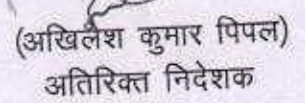 (अखिलेश कुमार पिपल)
अतिरिक्त निदेशक